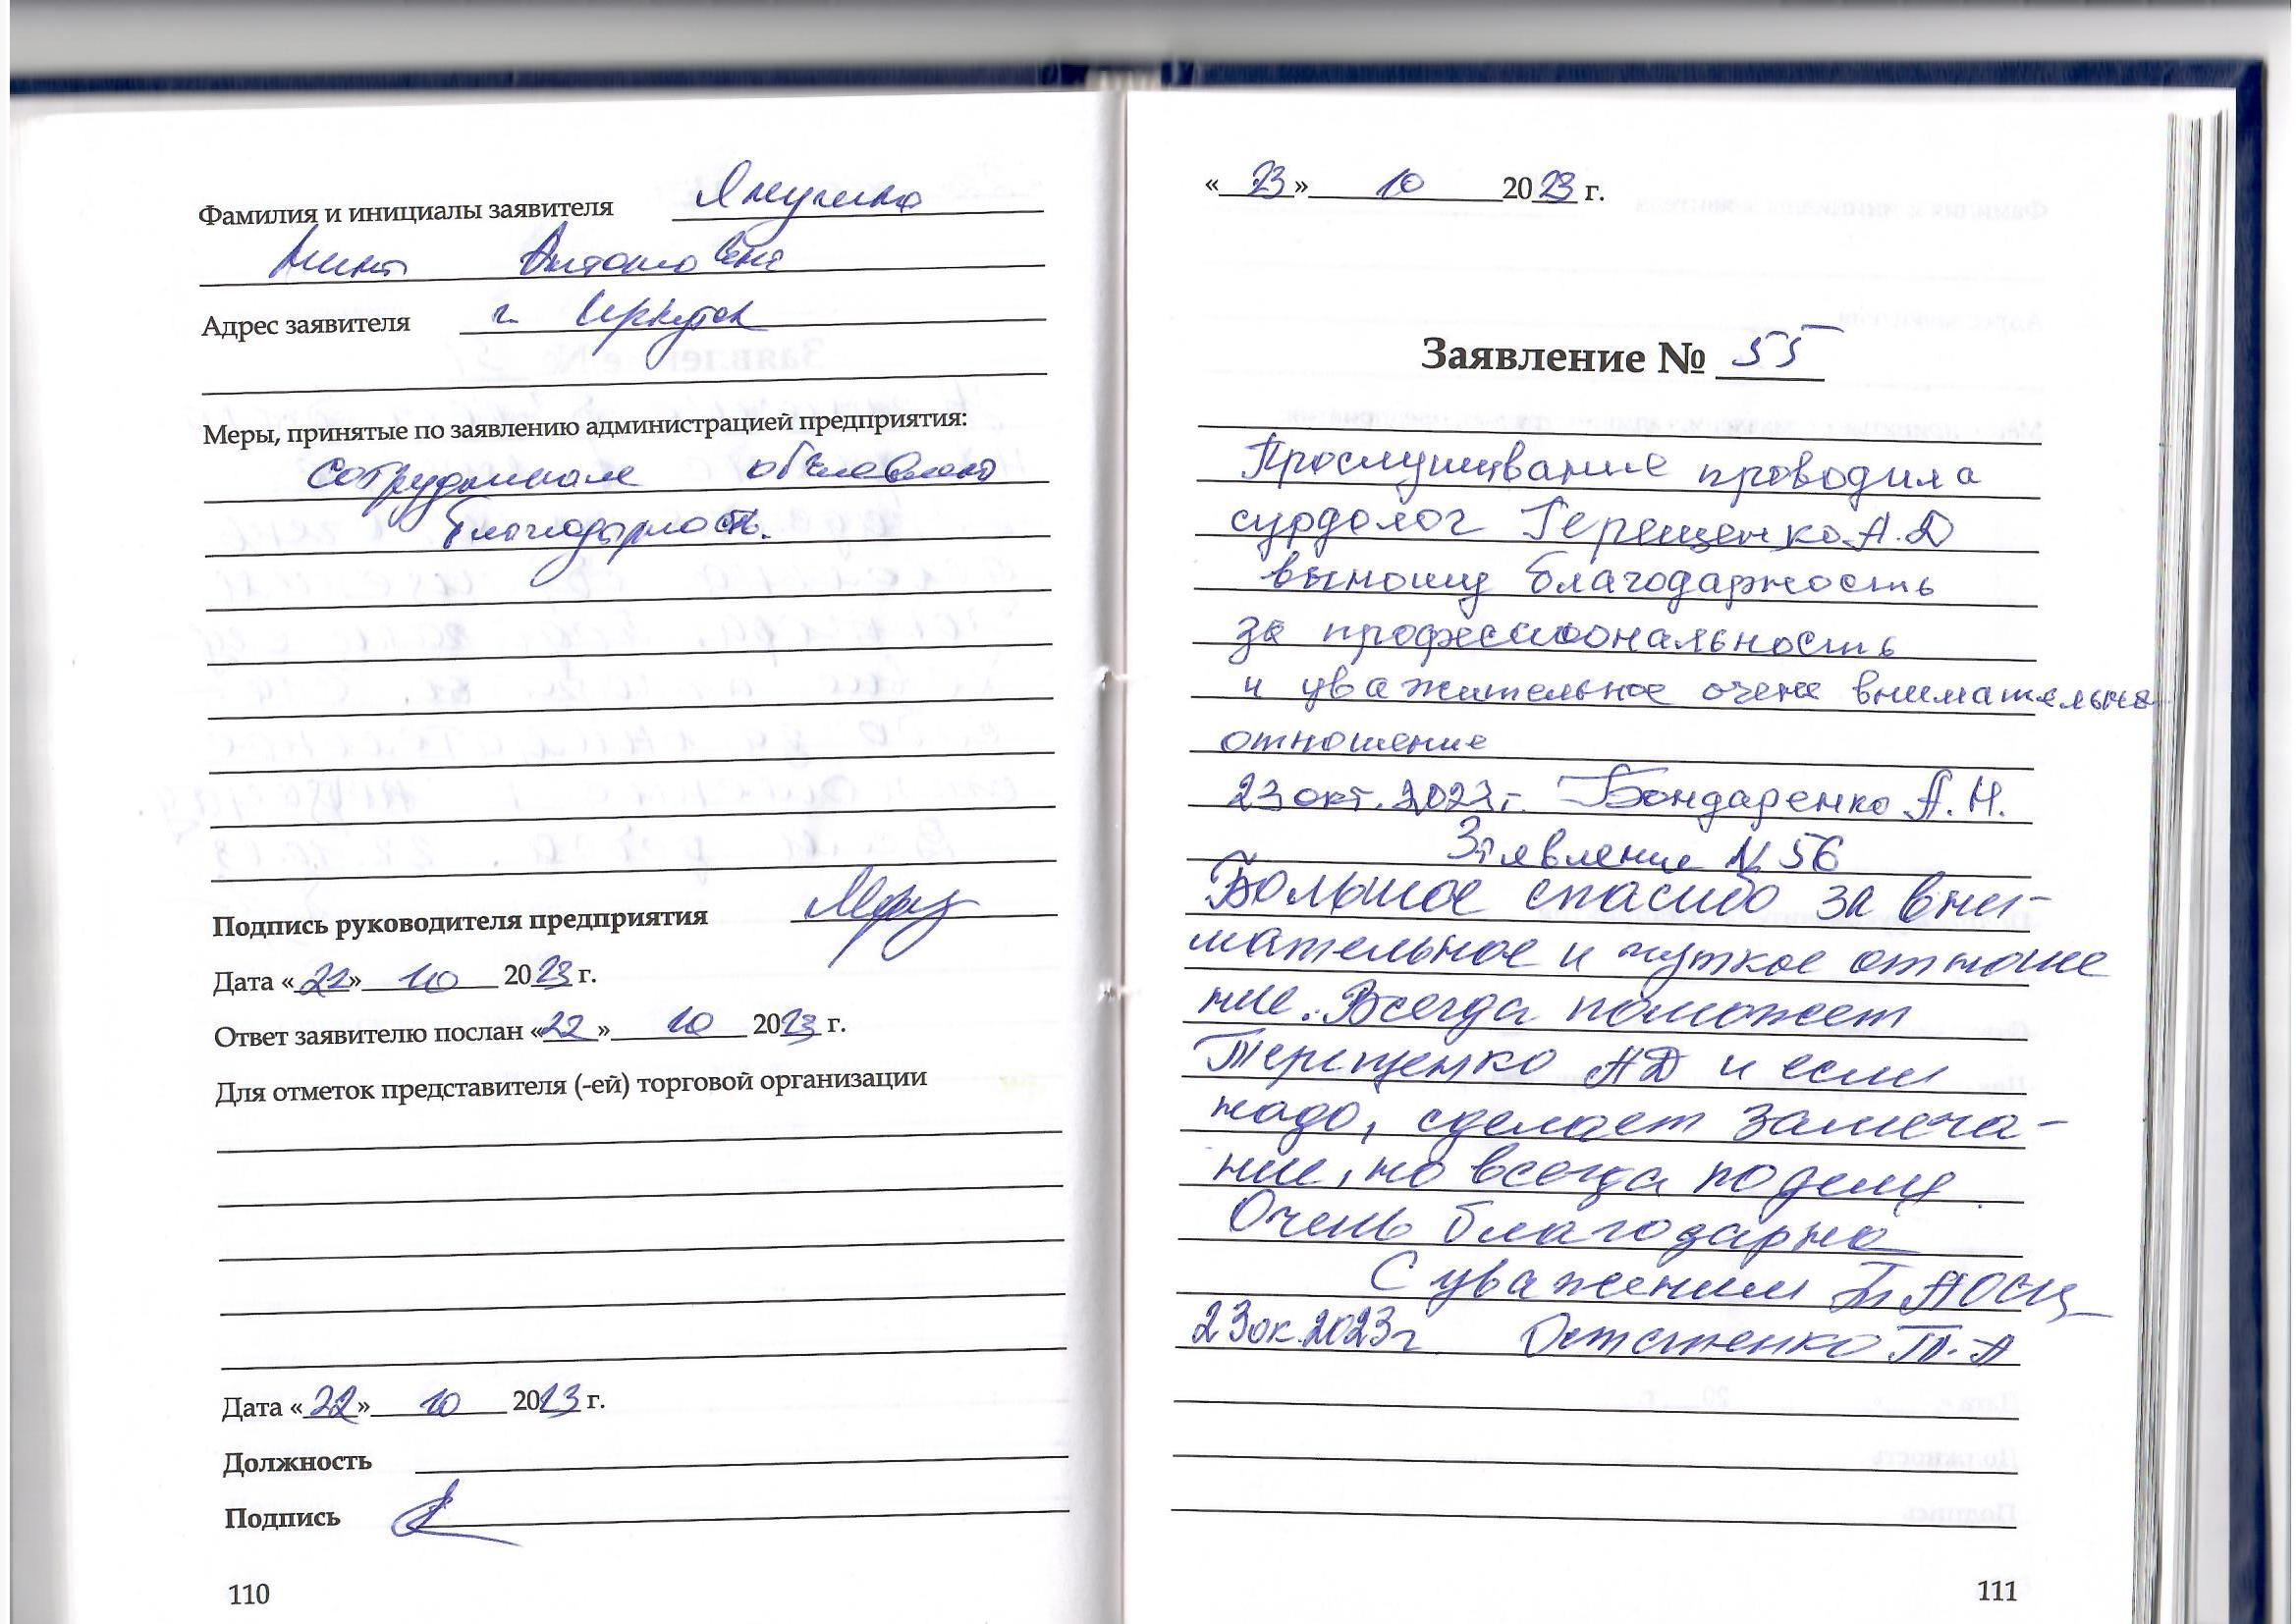 Фамилия и инициалы заявителя
Адрес заявителя г. Иркутск
Меры, принятые по заявлению администрацией предприятия:
сотрудникам объявлена
благодарность.
Подпись руководителя предприятия
Дата «22» 10 2023 г.
Ответ заявителю послан «22» 10 2023 г.
Для отметок представителя (-ей) торговой организации
Дата «22» 10 2023 г.
Должность
Подпись
110
«23» 10 2023 г.
Заявление № 55
Прослушивание проводила
сурдолог Терещенко А.Д
выношу благодарность
за профессиональность
и уважительное очень внимательное
отношение
23 окт. 2023 г. Бондаренко А.Н.
Заявление N 56
Большое спасибо за вни-
мательное и чуткое отноше
ние. Всегда поможет
Терещенко АД и если
надо, сделает замеча-
ние, но всегда по делу.
Очень благодарна
С уважением
23 ок. 2023 г Остапенко Т.А
111